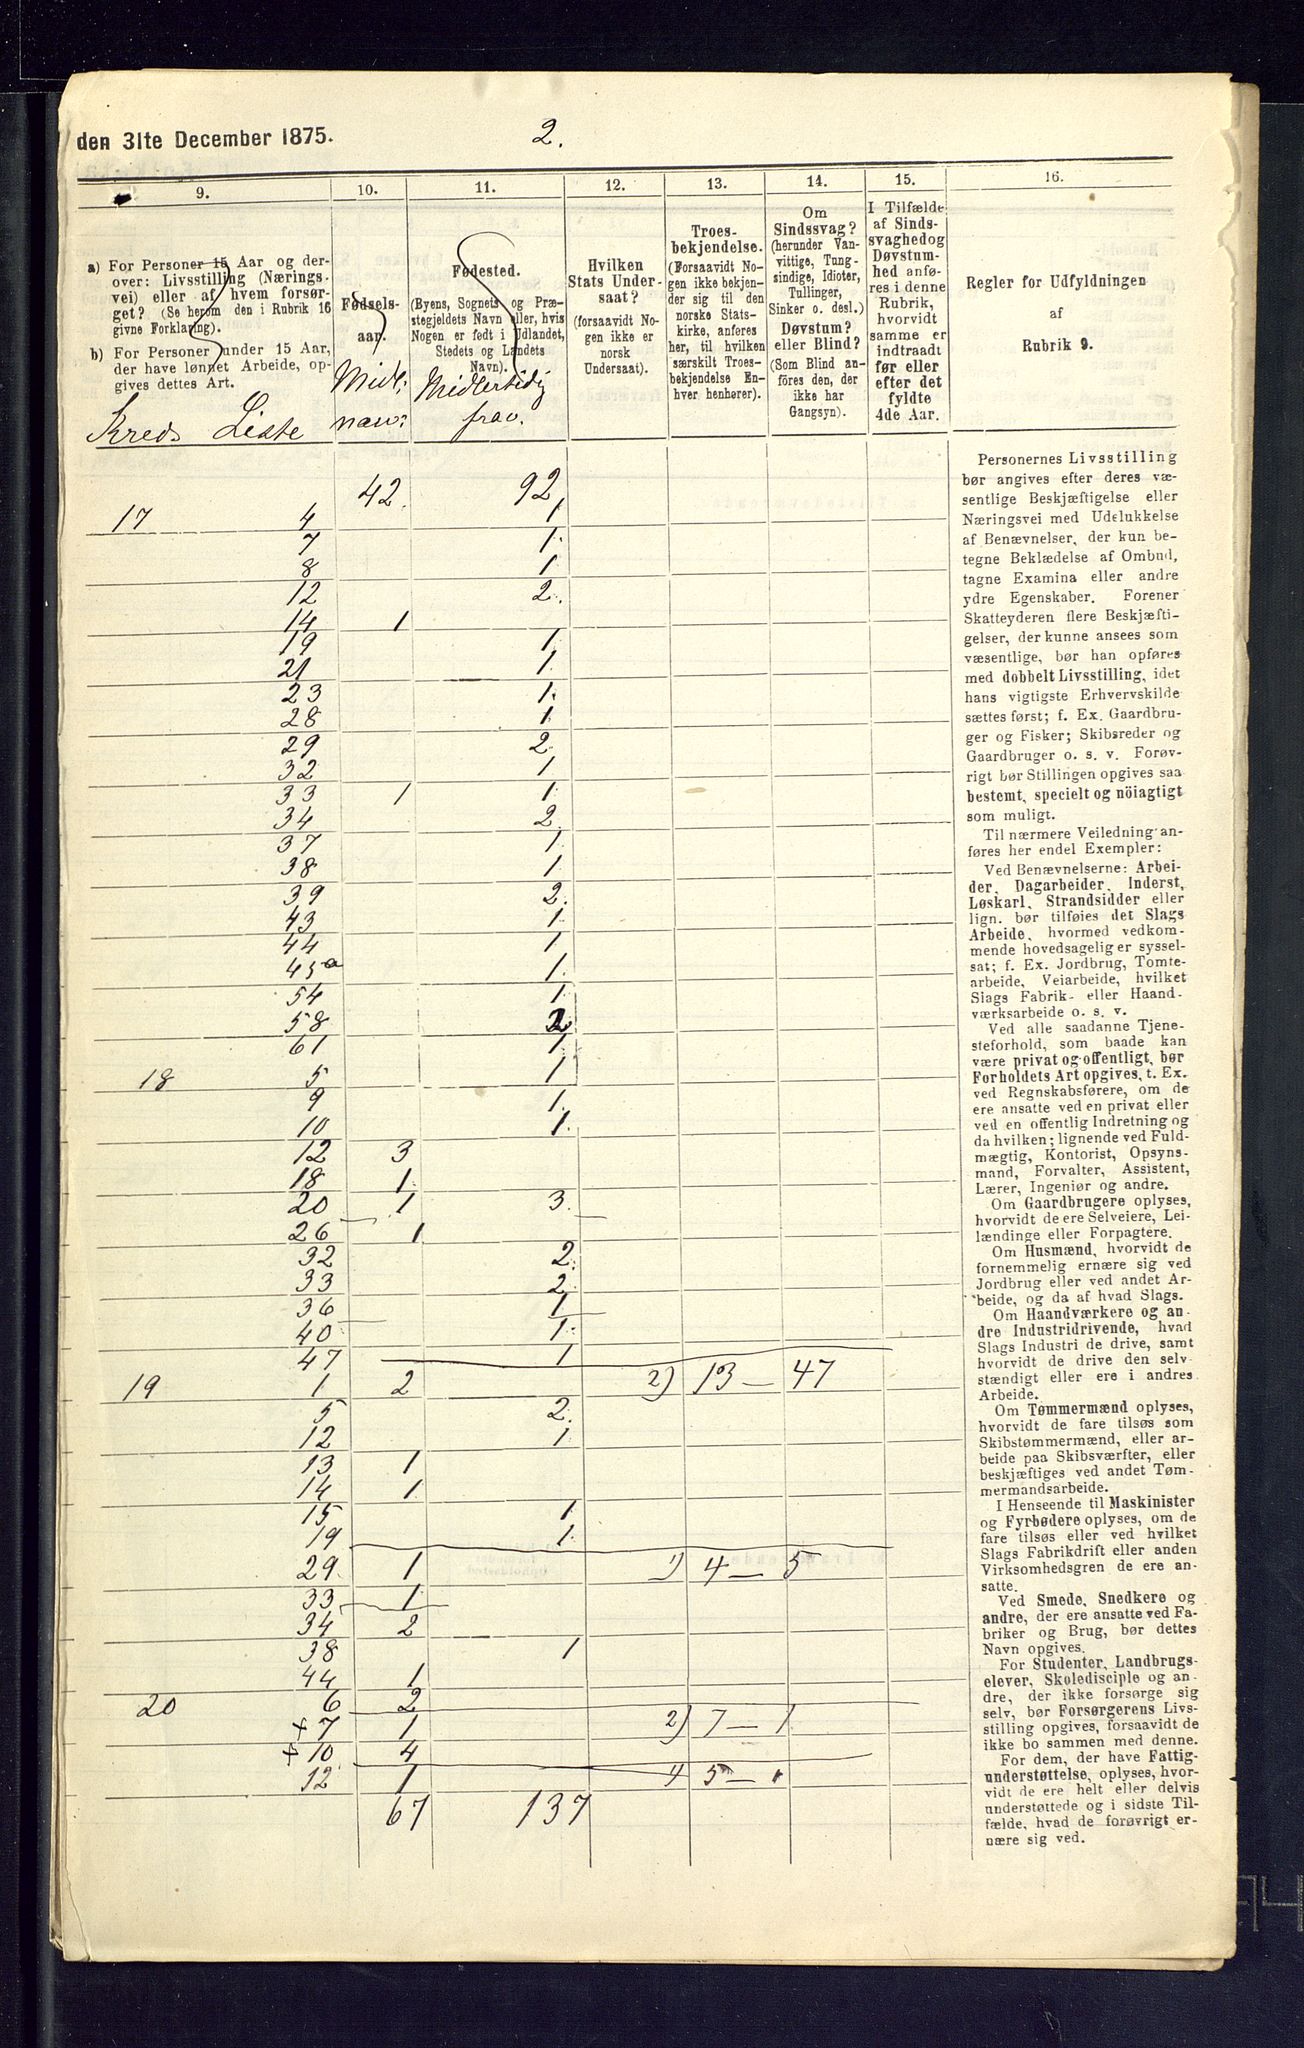 den 31te December 1875.
2.
9.
10.
11.
12.
13.
14.
15.
16.
a) For Personer 15 Aar og der-
over: Livsstilling (Nærings-
vei) eller af hvem forsør-
get? (Se herom den i Rubrik 16
givne Forklaring).
b) For Personer under 15 Aar,
der have lønnet Arbeide, op-
gives dettes Art.
Kreds Liste
Fødsels-
aar.
Midl:
nær:
Fødested.
(Byens, Sognets og Præ-
stegjeldets Navn eller, hvis
Nogen er født i Udlandet,
Stedets og Landets
Navn).
Midlertidig
frav.
Hvilken
Stats Under-
saat?
(forsaavidt No-
gen ikke er
norsk
Undersaat).
Troes-
bekjendelse.
(Forsaavidt No-
gen ikke bekjen-
der sig til den
norske Stats-
kirke, anføres
her, til hvilken
særskilt Troes-
bekjendelse En-
hver henhører).
Om
Sindssvag?
(herunder Van-
vittige, Tung-
sindige, Idioter,
Tullinger,
Sinker o. desl.)
Døvstum?
eller Blind?
(Som Blind an-
føres den, der
ikke har
Gangsyn).
I Tilfælde
af Sinds-
svaghed og
Døvstum-
hed anfø-
res i denne
Rubrik,
hvorvidt
samme er
indtraadt
før eller
efter det
fyldte
4de Aar.
Regler for Udfyldningen
af
Rubrik 9.
42. 92
17 4 1
7 1.
8 1
12 2.
14 1
19 1.
21 1.
23 1.
28 1.
29 2.
32 1
33 1 1.
34 2.
37 1.
38 1.
39 2.
43 1.
44 1
45a 1.
54 1.
58 2.
61 1.
18 5 1
9 1.
10 1.
12 3
18 1.
20 1 3.
26 1
32 2.
33 2.
36 1.
40 1.
47 1
19 1 2 2) 13 — 47
5 2.
12 1
13 1
14 1.
15 1.
19 1.
29. 1 1) 4 — 5
33 1.
34 2
38 1
44 1
20 6 2
+ 7 1 2) 7 — 1
+ 10 4
12 1 1) 5 —
67 137
Personernes Livsstilling
bør angives efter deres væ-
sentlige Beskjæftigelse eller
Næringsvei med Udelukkelse
af Benævnelser, der kun be-
tegne Beklædelse af Ombud,
tagne Examina eller andre
ydre Egenskaber. Forener
Skatteyderen flere Beskjæfti-
gelser, der kunne ansees som
væsentlige, bør han opføres
med dobbelt Livsstilling, idet
hans vigtigste Erhvervskilde
sættes først; f. Ex. Gaardbru-
ger og Fisker; Skibsreder og
Gaardbruger o. s. v. Forøv-
rigt bør Stillingen opgives saa
bestemt, specielt og nöiagtigt
som muligt.
Til nærmere Veiledning an-
føres her endel Exempler:
Ved Benævnelserne: Arbei-
der, Dagarbeider, Inderst,
Løskarl, Strandsidder eller
lign. bør tilføies det Slags
Arbeide, hvormed vedkom-
mende hovedsagelig er syssel-
sat; f. Ex. Jordbrug, Tomte-
arbeide, Veiarbeide, hvilket
Slags Fabrik- eller Haand-
værksarbeide o. s. v.
Ved alle saadanne Tjene-
steforhold, som baade kan
være privat og offentligt, bør
Forholdets Art opgives, t. Ex.
ved Regnskabsførere, om de
ere ansatte ved en privat eller
ved en offentlig Indretning og
da hvilken; lignende ved Fuld-
mægtig, Kontorist, Opsyns-
mand, Forvalter, Assistent,
Lærer, Ingeniør og andre.
Om Gaardbrugere oplyses,
hvorvidt de ere Selveiere, Lei-
lændinge eller Forpagtere.
Om Husmænd, hvorvidt de
fornemmelig ernære sig ved
Jordbrug eller ved andet Ar-
beide, og da af hvad Slags.
Om Haandværkere og an-
dre Industridrivende, hvad
Slags Industri de drive, samt
hvorvidt de drive den selv-
stændigt eller ere i andres
Arbeide.
Om Tømmermænd oplyses,
hvorvidt de fare tilsøs som
Skibstømmermænd, eller ar-
beide paa Skibsværfter, eller
beskjæftiges ved andet Tøm-
mermandsarbeide.
I Henseende til Maskinister
og Fyrbødere oplyses, om de
fare tilsøs eller ved hvilket
Slags Fabrikdrift eller anden
Virksomhedsgren de ere an-
satte.
Ved Smede, Snedkere og
andre, der ere ansatte ved Fa-
briker og Brug, bør dettes
Navn opgives.
For Studenter, Landbrugs-
elever, Skoledisciple og an-
dre, der ikke forsørge sig
selv, bør Forsørgerens Livs-
stilling opgives, forsaavidt de
ikke bo sammen med denne.
For dem, der have Fattig-
understøttelse, oplyses, hvor-
vidt de ere helt eller delvis
understøttede og i sidste Til-
fælde, hvad de forøvrigt er-
nære sig ved.